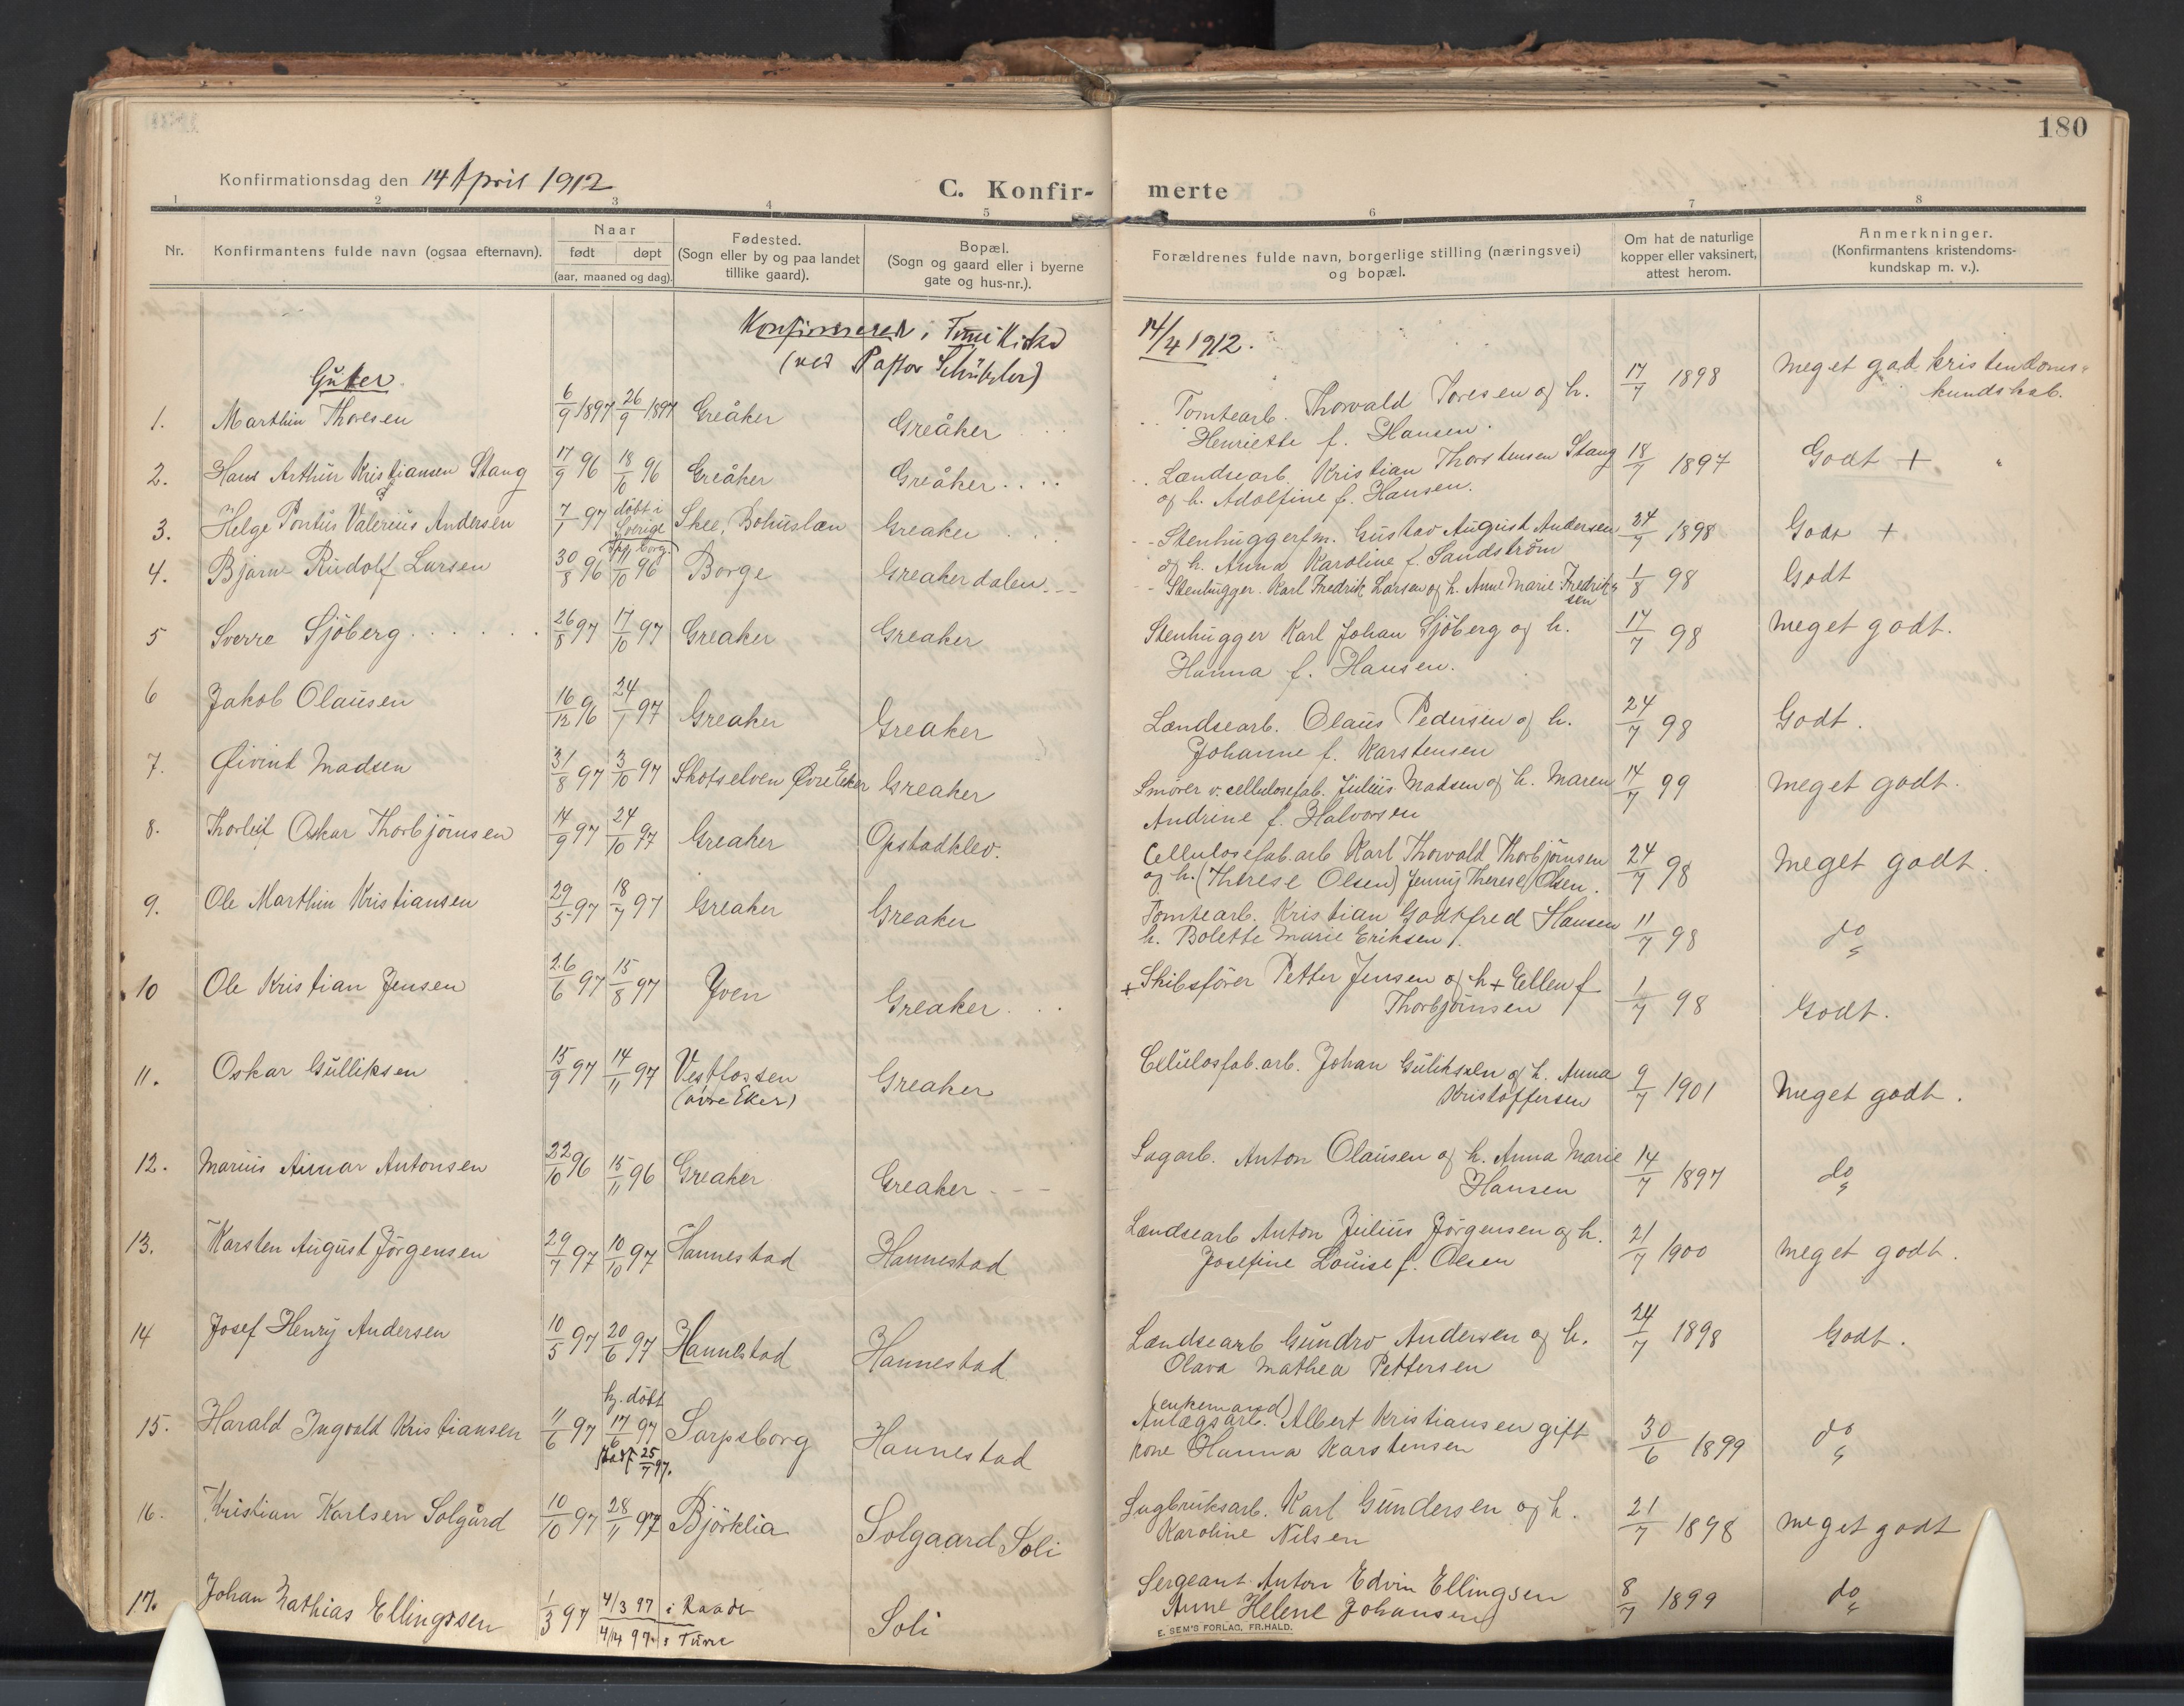 180
Konfirmationsdag den 14 April 1912
C. Konfir- merte
1 2 3 4 5 6 7 8
Nr. Konfirmantens fulde navn (ogsaa efternavn). Naar født døpt (aar, maaned og dag). Fødested. (Sogn eller by og paa landet tillike gaard). Bopæl. (Sogn og gaard eller i byerne gate og hus-nr.). Forældrenes fulde navn, borgerlige stilling (næringsvei) og bopæl. Om hat de naturlige kopper eller vaksinert, attest herom. Anmerkninger. (Konfirmantens kristendoms-kundskap m. v.).
i Tune Kirke 14/4 1912.
(ved Pastor
Gutter.
1. Marthin Thoresen 6/9 1897 26/9 1897 Greåker Greåker Tomtearb. Thorvald Toresen og h. 17/7 1898 Meget god kristendoms-
Henriette f. Hansen. kundskab.
2. Hans Arthur Kristiansen Stang 17/9 96 18/10 96 Greåker Greåker Lændsearb. Kristian Thorstensen Stang 18/7 1897 Godt +
og h. Adolfine f. Hansen.
3. Helge Pontus Valerius Andersen 7/1 97 döbt i Sverige Skee, Bohuslæn Greaker Stenhuggerfm. Gustav August Andersen 24/7 1898 Godt +
og h. Anna Karoline f. Sandström
4. Bjarne Rudolf Larsen 30/8 96 11/10 96 Borge Greakerdalen Stenhugger. Karl Fredrik Larsen og h. Anne Marie Fredriksen 1/8 98 Godt
5 Sverre Sjöberg 26/8 97 17/10 97 Greaker Greaker Stenhugger Karl Johan Sjöberg og h. 17/7 98 Meget godt.
Hanna f. Hansen.
6 Jakob Olausen 16/12 96 24/1 97 Greaker Greaker Lændsearb. Olaus Pedersen og h. 24/7 98 Godt.
Johanne f. Karstensen
7. Øivind Madsen 31/8 97 3/10 97 Skotselven Øvre Eker Greaker Smörer v. cellulosefab. Julius Madsen og h. Maren 14/7 99 Meget godt.
Andrine f. Halvorsen
8. Thorleif Oskar Thorbjörnsen 14/9 97 24/10 97 Greaker Opstadklev. Cellulosefab.arb Karl Thorvald Thorbjörnsen 24/7 98 Meget godt.
og h. (Therese Olsen) Jenny Therese Olsen.
9. Ole Marthin Kristiansen 29/5 97 18/7 97 Greaker Greaker Tomtearb. Kristian Godtfred Hansen 11/7 98 do
h. Bolette Marie Eriksen
10 Ole Kristian Jensen 26/6 97 15/8 97 Yven Greaker + Skibsförer Petter Jensen og h + Ellen f 1/7 98 Godt.
Thorbjörnsen
11. Oskar Gulliksen 15/9 97 14/11 97 Vestfossen (övre Eker) Greaker Cellulosfab.arb. Johan Guliksen og h. Anna 9/7 1901 Meget godt.
Kristoffersen
12. Marius Aimar Antonsen 22/10 96 15/11 96 Greaker Greaker Sagarb. Anton Olausen og h. Anna Marie 14/7 1897 do
Hansen
13. Karsten August Jörgensen 29/7 97 10/10 97 Hannestad Hannestad Lændsearb Anton Julius Jörgensen og h. 21/7 1900 Meget godt.
Josefine Louise f. Olsen
14 Josef Henry Andersen 10/5 97 20/6 97 Hannestad Hannestad Lændsearb Gundro Andersen og h. 24/7 1898 Godt.
Olava Mathea Pettersen
15. Harald Ingvald Kristiansen 11/6 97 hj. döbt 17/6 97 stadf 25/7 97. Sarpsborg Hannestad (enkemand)
Anlægsarb. Albert Kristiansen gift 30/6 1899 do
kone Hanna Karstensen
16. Kristian Karlsen Solgård 10/10 97 28/11 97 Björklia Solgaard Soli Sagbruksarb. Karl Gundersen og h. 21/7 1898 Meget godt
Karoline Nilsen
17. Johan Mathias Ellingsen 1/3 97 4/3 97 i Raade Soli Sergeant Anton Edvin Ellingsen 8/7 1899 do
i Tune Anne Helene Johansen
E. SEM'S FORLAG, FR.HALD.